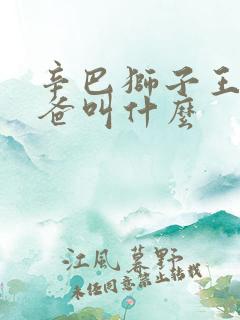 辛巴獅子王
爸叫什麼
江風暮野
未任同意禁止转载